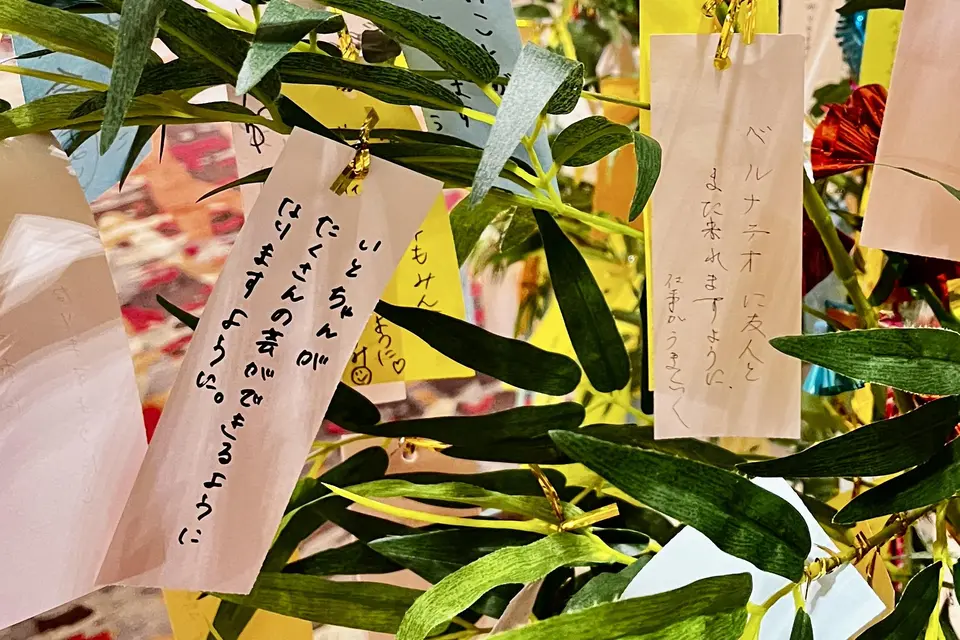 ベルナテオ に友人と
また来れますように、
仕事がうまくいく
もみん
ように♡
いとちゃんが
たくさんの芸ができるように
なりますように。